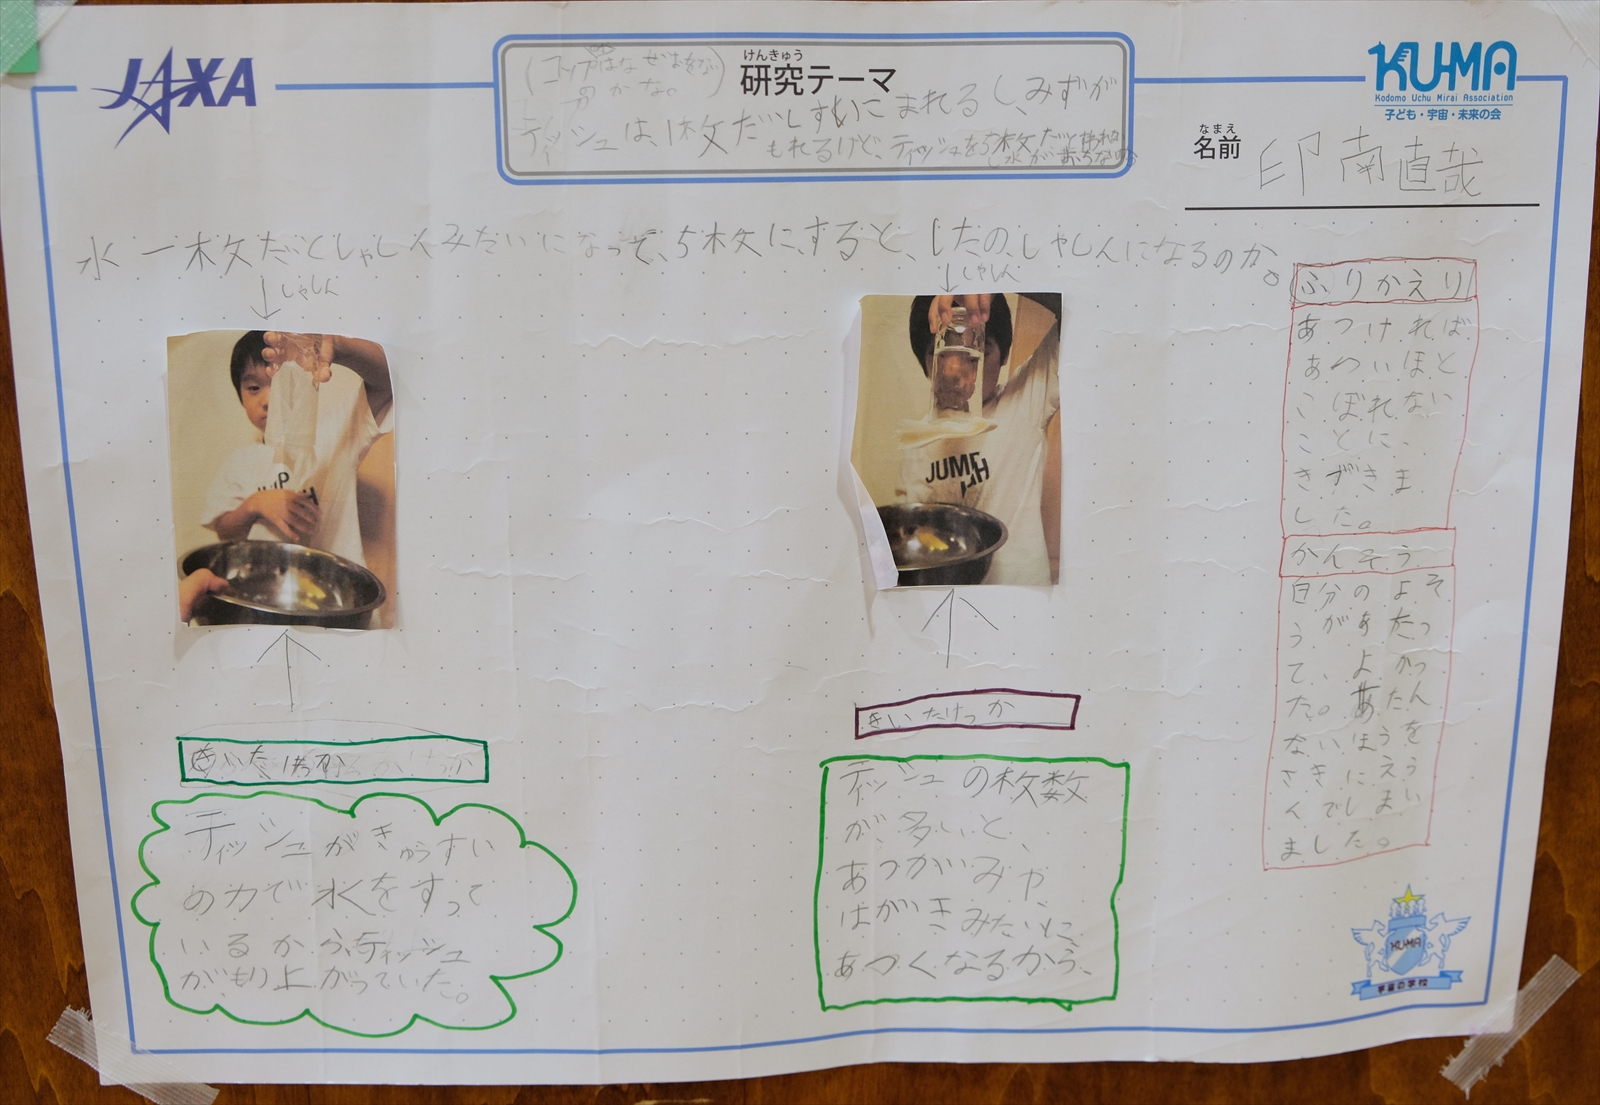 JAXA
けんきゅう
研究テーマ
(コップはなぜ
のかな。)
ティッシュは、1枚だしすいこまれるし、みずが
もれるけど、ティッシュを5枚だと
水が
KUMA
Kodomo Uchu Mirai Association
子ども・宇宙・未来の会
なまえ
名前
印南直哉
水 一枚だとしゃしんみたいになって、5枚にすると、したのしゃしんになるのか。
しゃしん
しゃしん
JUMP
JUMP
きいたけっか
ティッシュがきゅうすい
の力で水をすって
いるからティッシュ
がもり上がっていた。
きいたけっか
ティッシュの枚数
が、多いと、
あつがいみや、
はがきみたいに
あつくなるから、
ふりかえり
あつければ
あついほど
こぼれない
ことに、
きずきま
した。
かんそう
自分のよそ
うがあたっ
て、よかっ
た。あたん
ないほうを
さきにえう
んでしまい
ました。
KU-MA
宇宙の学校